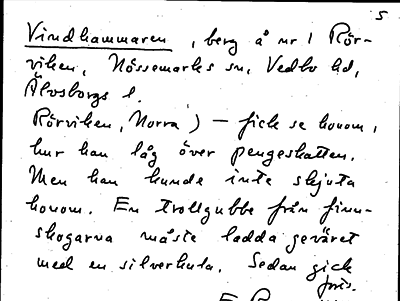 5
Vindhammaren, berg å nr 1 Rör-
viken, Nössemarks sn, Vedbo hd,
Älvsborgs l.
Rörviken, Norra) — fick se honom,
hur han låg över pengeskatten.
Men han kunde inte skjuta
honom. En trollgubbe från finn-
skogarna måste ladda geväret
med en silverkula. Sedan gick